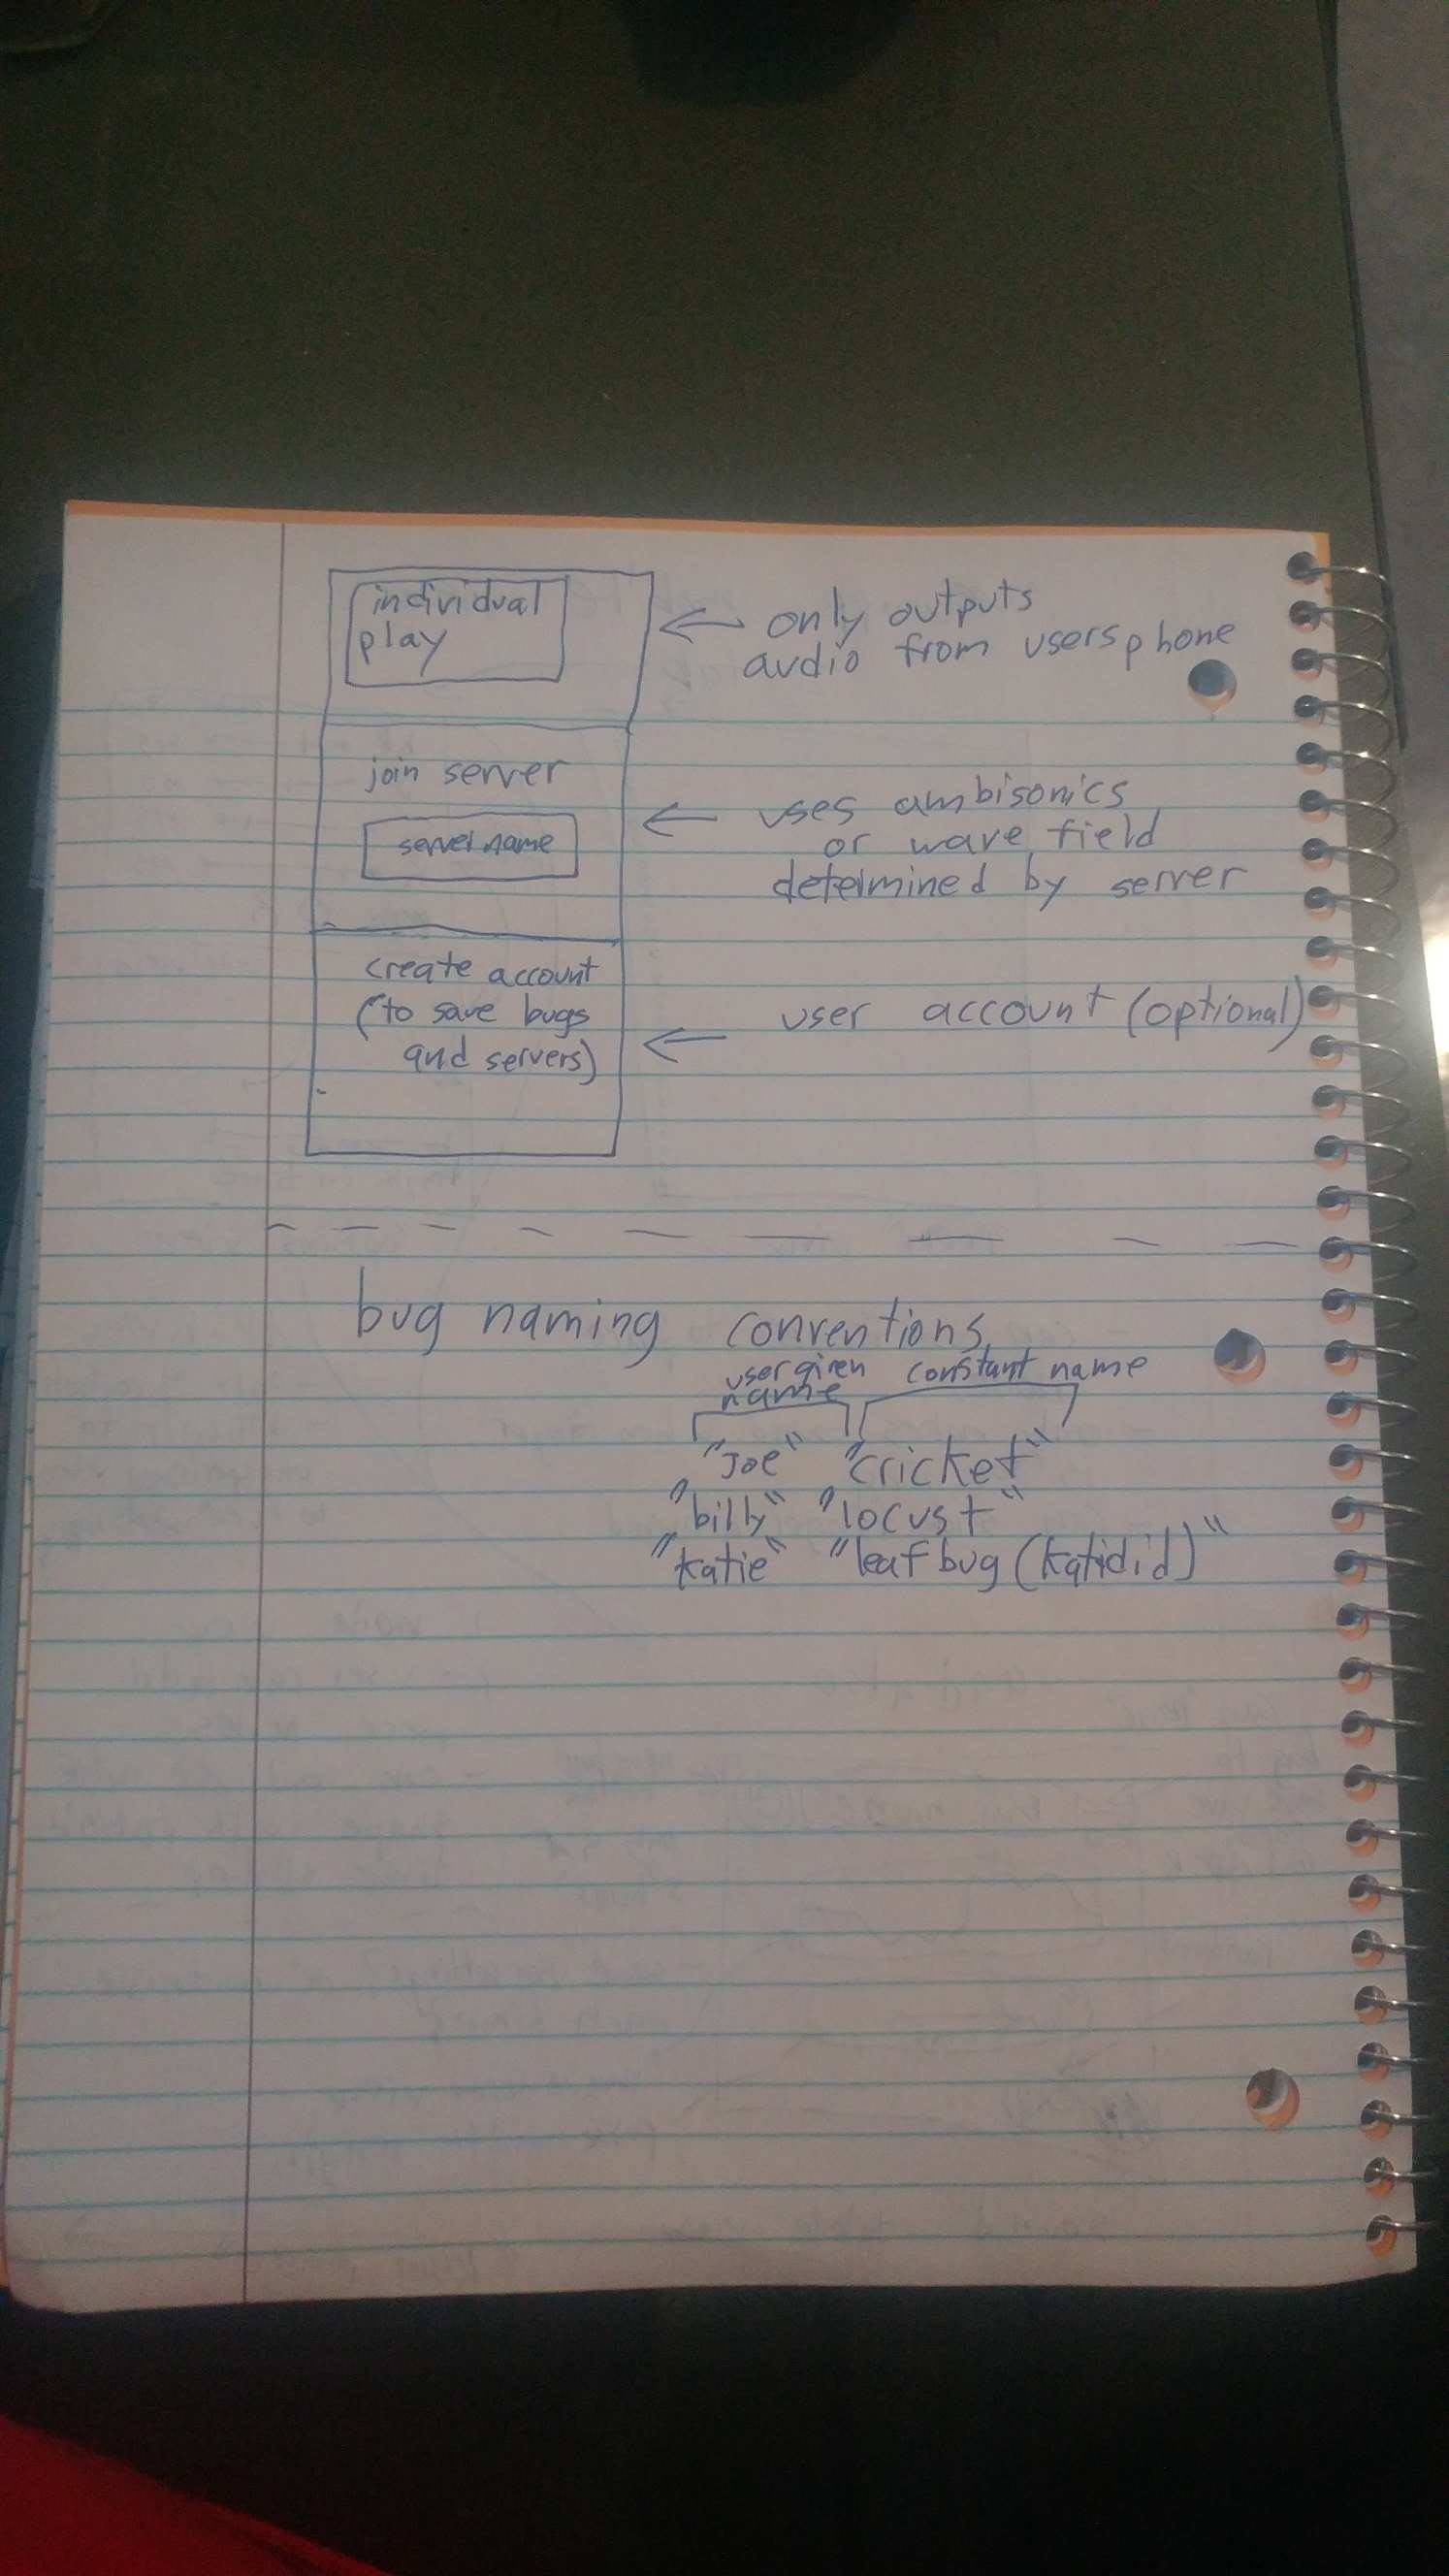 individual
play
only outputs
audio from users phone
join server
server name
uses ambisonics
or wave field
determined by server
create account
(to save bugs
and servers)
user account (optional)
bug naming conventions
user given
name
constant name
"Joe" "cricket"
"billy" "locust"
"katie" "leaf bug (katidid)"